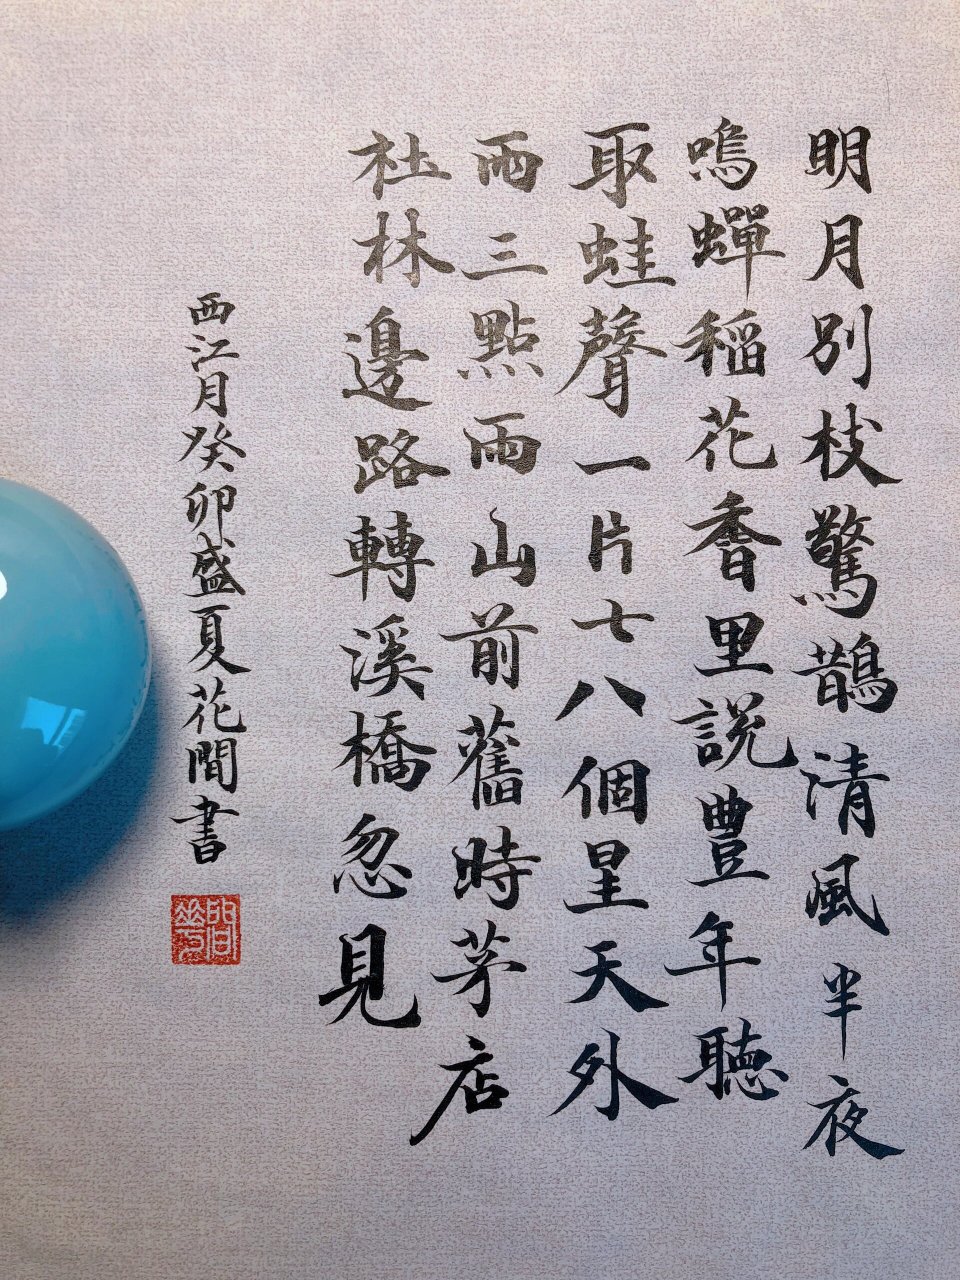 明月別枝驚鵲清風半夜
鳴蟬稻花香里說豐年聽
取蛙聲一片七八個星天外
兩三點雨山前舊時茅店
社林邊路轉溪橋忽見
西江月癸卯盛夏花間書